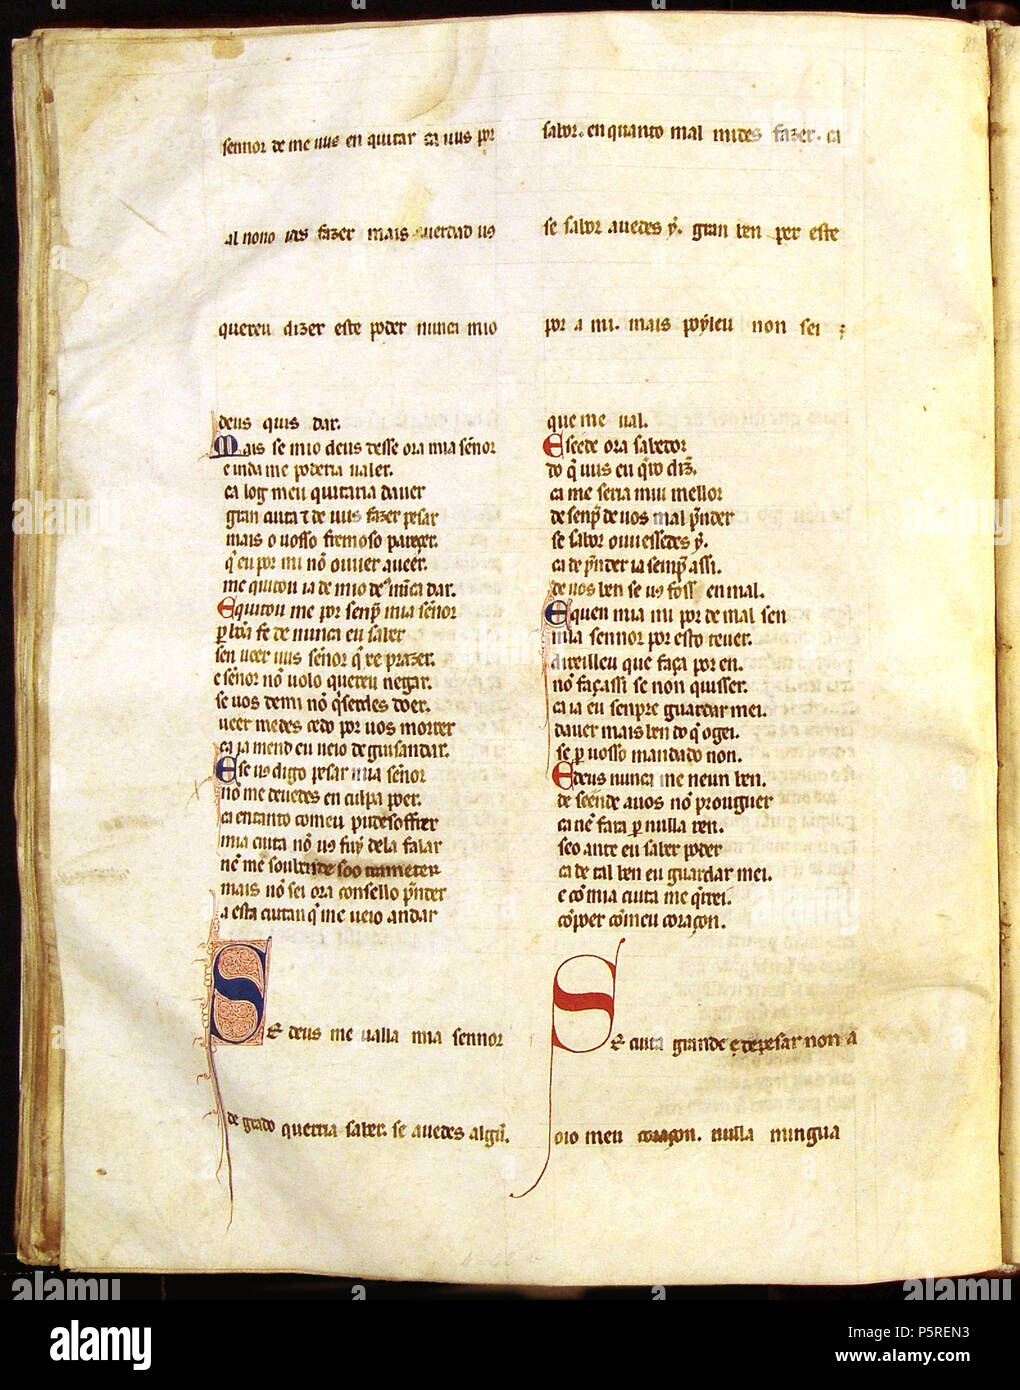 sennor de me uus en quitar ca uus por
al nono ides fazer mais uerdad us
quereu dizer este poder nunca mio
deus quis dar.
Mais se mio deus desse ora mia señor
e inda me poderia ualer.
ca log meu quitaria dauer
gran cuita ⁊ de uus fazer pesar
mais o uosso fremoso pareçer.
q̄ eu por mi nō ouuer aueer.
me quitou ia de mio de⁹ nūca dar.
E quitou me por senp̄ mia señor
p̄ bōa fe de nunca eu saber
sen ueer uus señor q̄ re prazer.
e señor nō uolo quereu negar.
se uos demi nō q̄serdes doer.
ueer medes cedo por uos morrer
ca ia mend eu ueio de guisandar.
E se us digo pesar mia señor
nō me deuedes en culpa poer.
ca entanto comeu pudesoffrer
mia cuita nō us fuy dela falar
nē me soub
mais nō sei ora consello p̄nder
a esta cuitan q̄ me ueio andar
SE deus me ualla mia sennor
de grado querria saber. se auedes algū.
sabor. en quanto mal mides fazer. ca
se sabor auedes y. gran ben per este
por a mi. mais poyleu non sei ;
que me ual.
E seede ora sabedor
do q̄ uus eu q̄ro diz̄.
ca me seria mui mellor
de senp̄ de uos mal p̄nder
se sabor ouuessedes y.
ca de p̄nder ia semp̄ assi.
de uos ben se us foss en mal.
E quen mia mi por de mal sen
mia sennor por esto teuer.
direilleu que faça por en.
nō façassi se non quisser.
ca ia eu senpre guardar mei.
dauer mais ben do q̄ ogei.
se p̄ uosso mandado non.
E deus nunca me neun ben.
de seende auos nō prouguer
ca nē fara p̄ nulla ren.
seo ante eu saber poder
ca de tal ben eu guardar mei.
e cō mia cuita me q̄rrei.
cōpoer cōmeu coraçon.
SE cuita grande e de pesar non a
oio meu coraçon. nulla ningua
alamy
alamy
Image ID: P5REN3
www.alamy.com